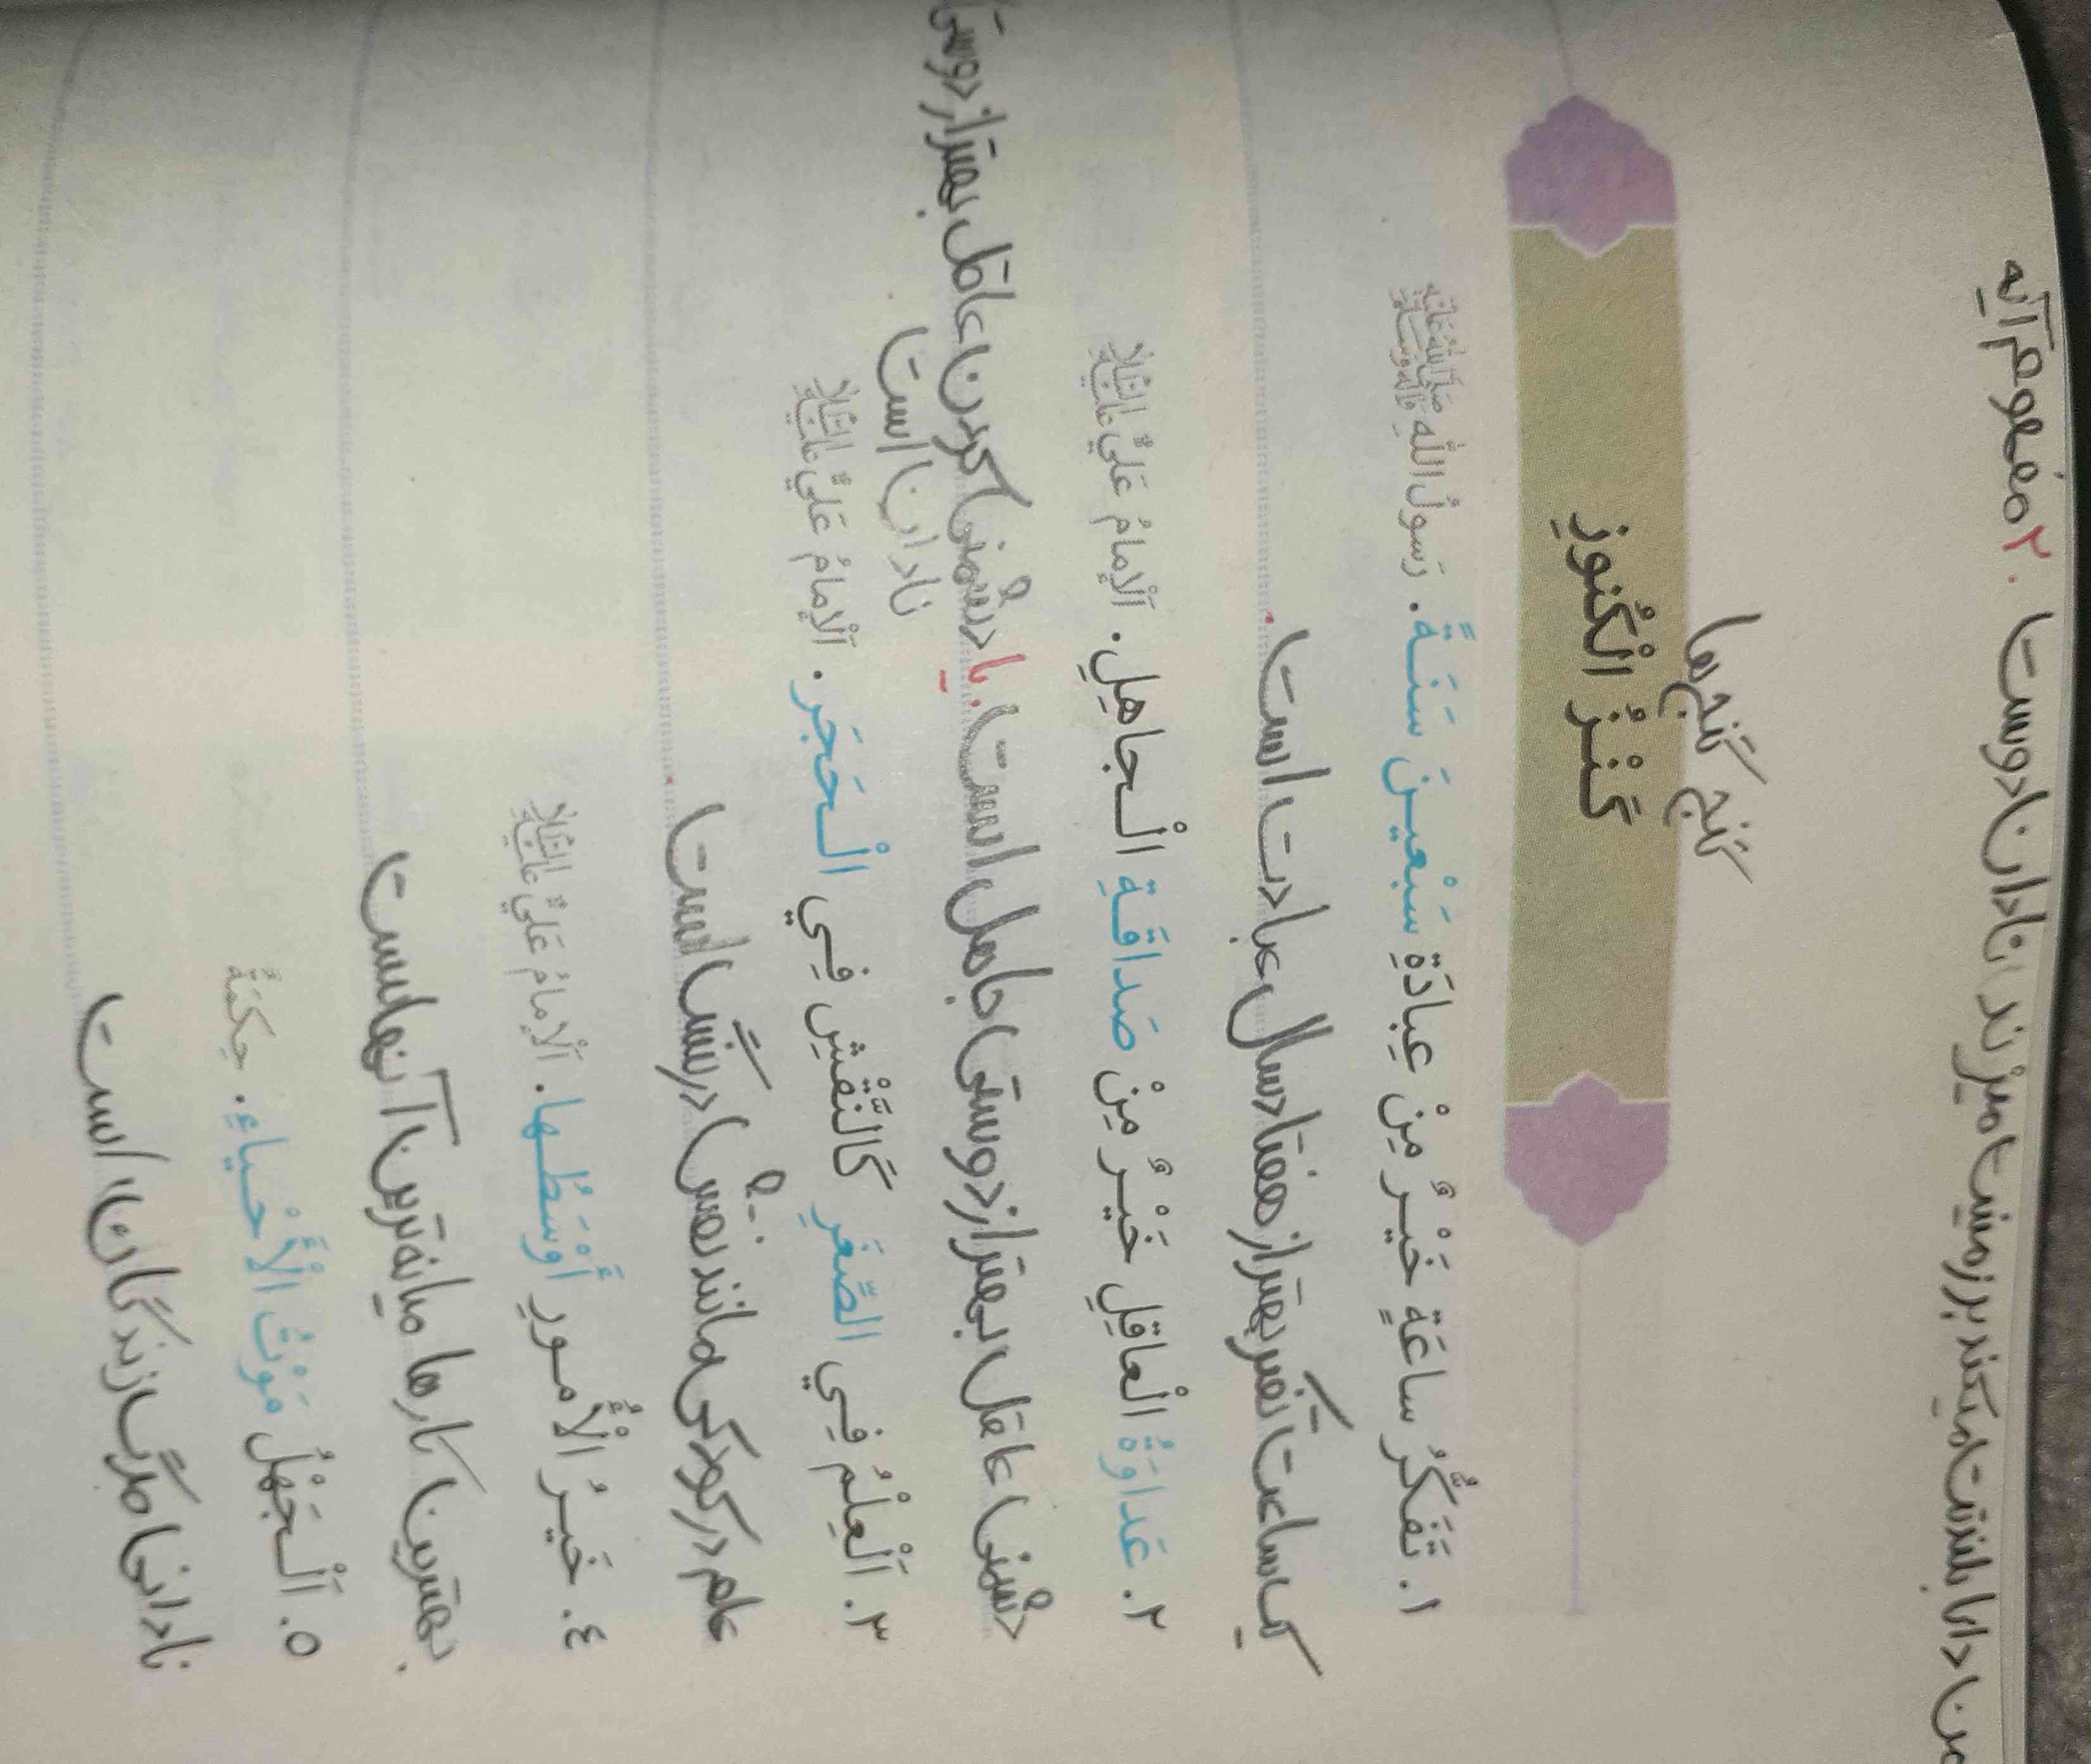 نادان دوست ۲. مفهوم آنه
دانا بلندت میکند بر زمینت میزند نادان دوست
گنج گنج‌ها
كَنْزُ الْكُنوزِ
۱. تَفَكُّرُ ساعَةٍ خَيْرٌ مِنْ عِبادَةِ سَبْعينَ سَنَةً. رَسولُ اللهِ ﷺ
یک ساعت تفکر بهتر از هفتاد سال عبادت است.
۲. عَداوَةُ الْعاقِلِ خَيْرٌ مِنْ صَداقَةِ الْجاهِلِ. اَلْإمامُ عَليٌّ عليه السلام
دشمنی عاقل بهتر از دوستی جاهل است. یا دشمنی کردن عاقل بهتر از دوستی
نادان است
۳. اَلْعِلْمُ فِي الصِّغَرِ كَالنَّقْشِ فِي الْحَجَرِ. اَلْإمامُ عَليٌّ عليه السلام
علم در کودکی مانند نقش در سنگ است.
٤. خَيْرُ الْأُمورِ أَوْسَطُها. اَلْإمامُ عَليٌّ عليه السلام
بهترین کارها میانه ترین آنهاست
٥. اَلْجَهْلُ مَوْتُ الْأَحْياءِ. حِكمَةٌ
نادانی مرگ زندگان است